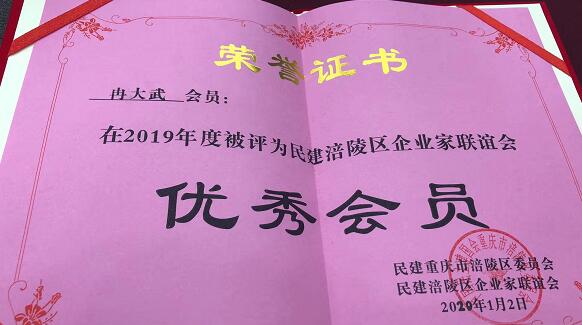 荣誉证书
冉大武 会员：
在2019年度被评为民建涪陵区企业家联谊会
优秀会员
民建重庆市涪陵区委员会
民建涪陵区企业家联谊会
2020年1月2日